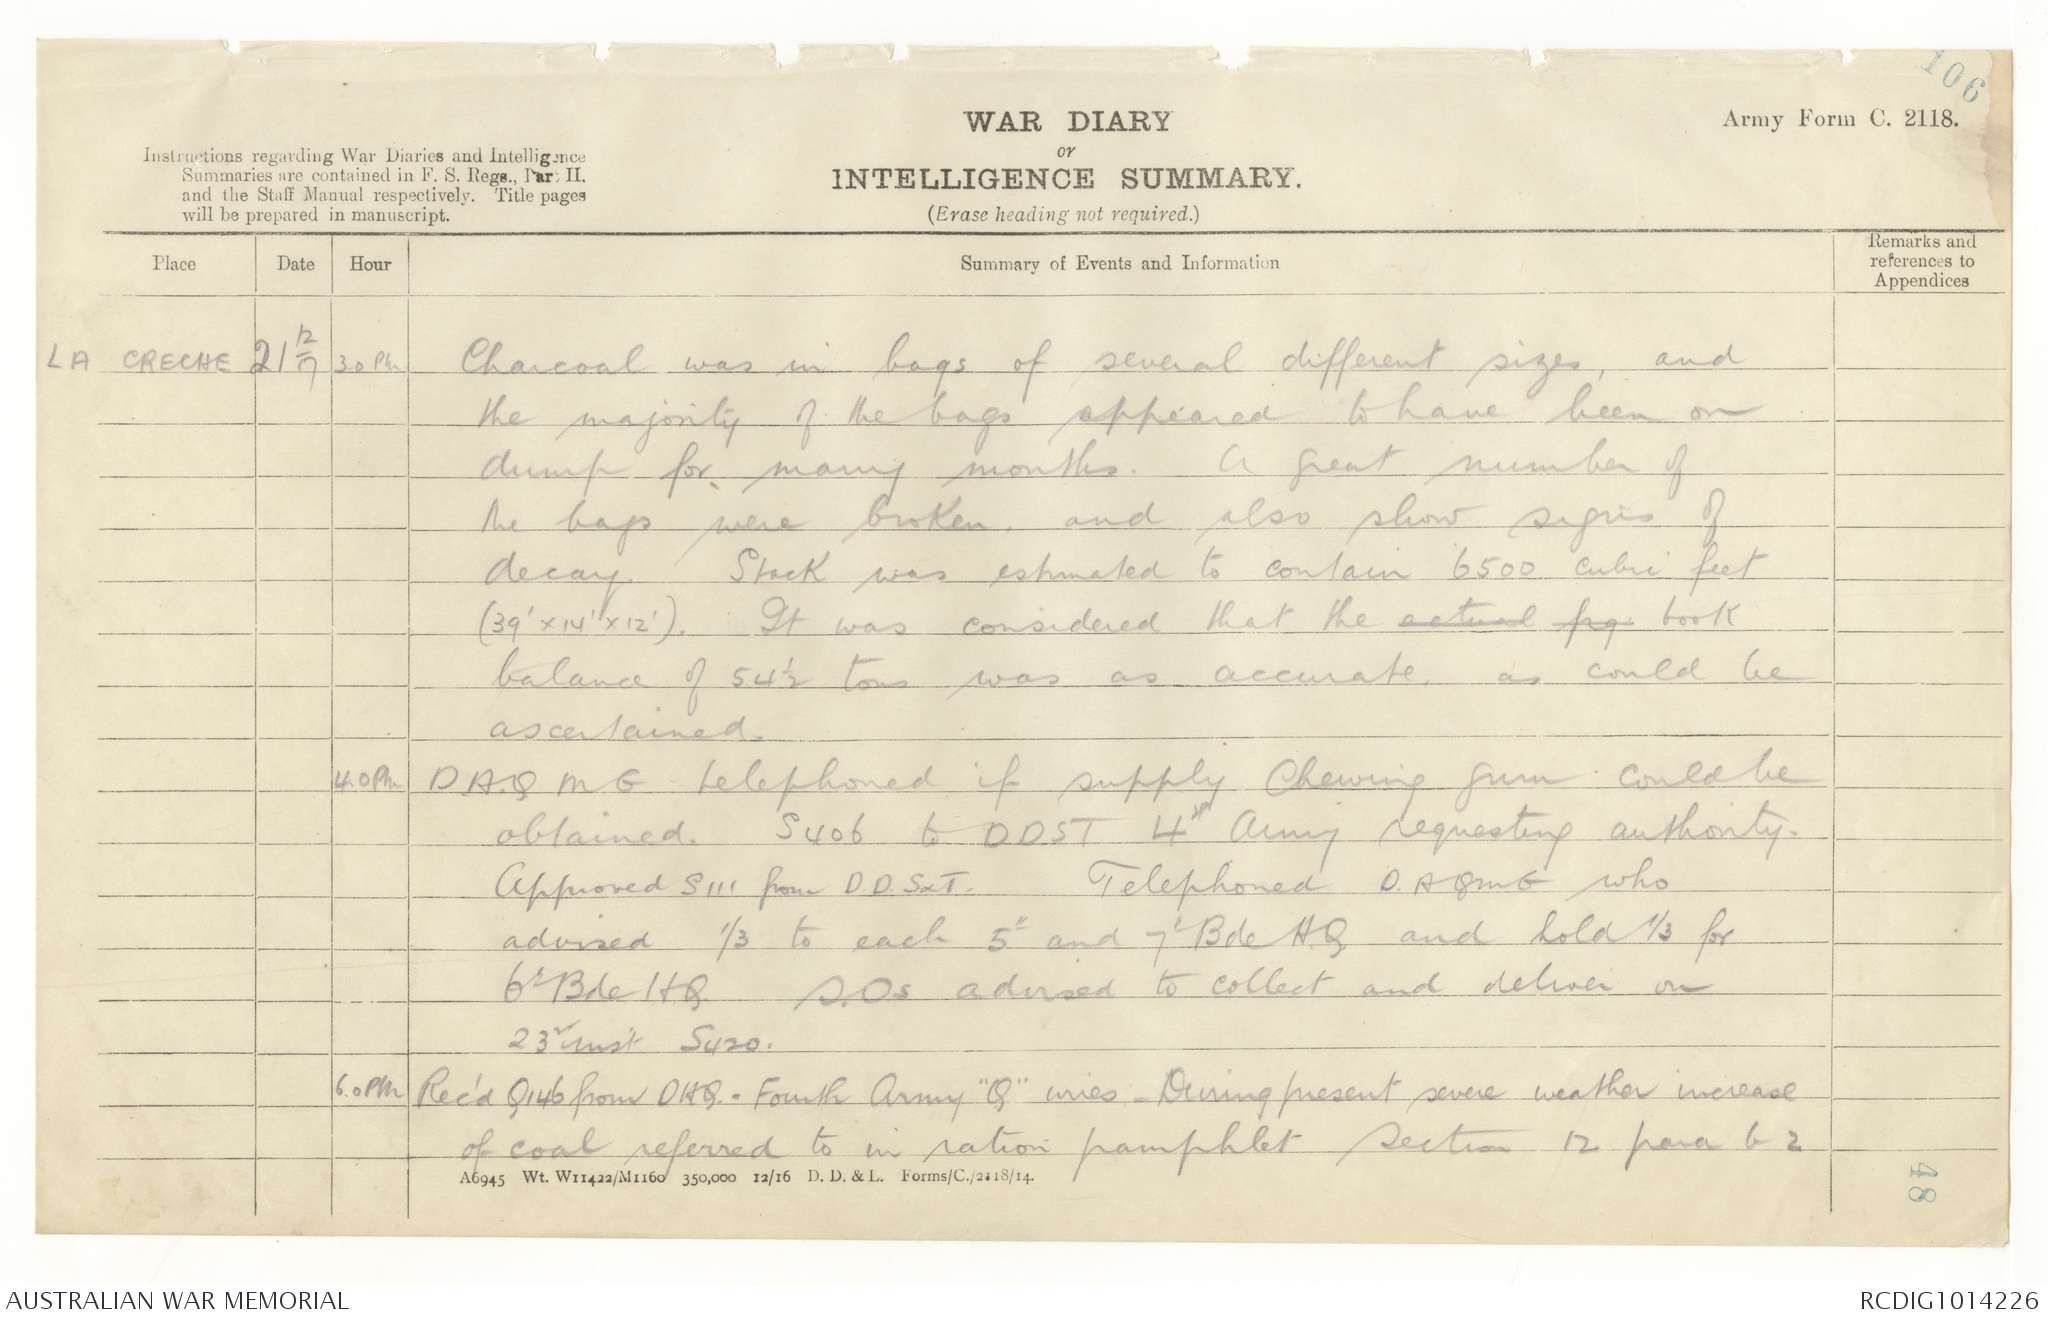 106
WAR DIARY
or
INTELLIGENCE SUMMARY.
(Erase heading not required.)
Army Form C. 2118.
Instructions regarding War Diaries and Intelligence
Summaries are contained in F. S. Regs., Part II.
and the Staff Manual respectively. Title pages
will be prepared in manuscript.
Place Date Hour Summary of Events and Information Remarks and
references to
Appendices
LA CRECHE 21 12/17 3.0 Pm Charcoal was in bags of several different sizes, and
the majority of the bags appeared to have been on
dump for many months. A great number of
the bags were broken. and also show signs of
decay. Stack was estimated to contain 6500 cubic feet
(39' x 14' x 12'). It was considered that the actual book
balance of 54½ tons was as accurate. as could be
ascertained.
4.0 Pm D A.Q M G telephoned if supply Chewing gum could be
obtained. S406 to DDST 4th Army requesting authority.
Approved S111 from D.D.S&T. Telephoned D.AQMG who
advised 1/3 to each 5th and 7th Bde H.Q. and hold 1/3 for
6th Bde HQ. S.Os advised to collect and deliver on
23rd inst S420.
6.0 PM Rec'd Q146 from DHQ. - Fourth Army "Q" wires - During present severe weather increase
of coal referred to in ration pamphlet section 12 para b 2
A6945 Wt. W11422/M1160 350,000 12/16 D. D. & L. Forms/C./2118/14.
48
AUSTRALIAN WAR MEMORIAL
RCDIG1014226